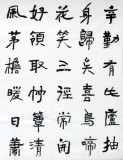 辛勤有此廬抽
身歸矣喜鳥啼
花笑三徑常開
好領取竹簟清
風茅檐暖日蕭